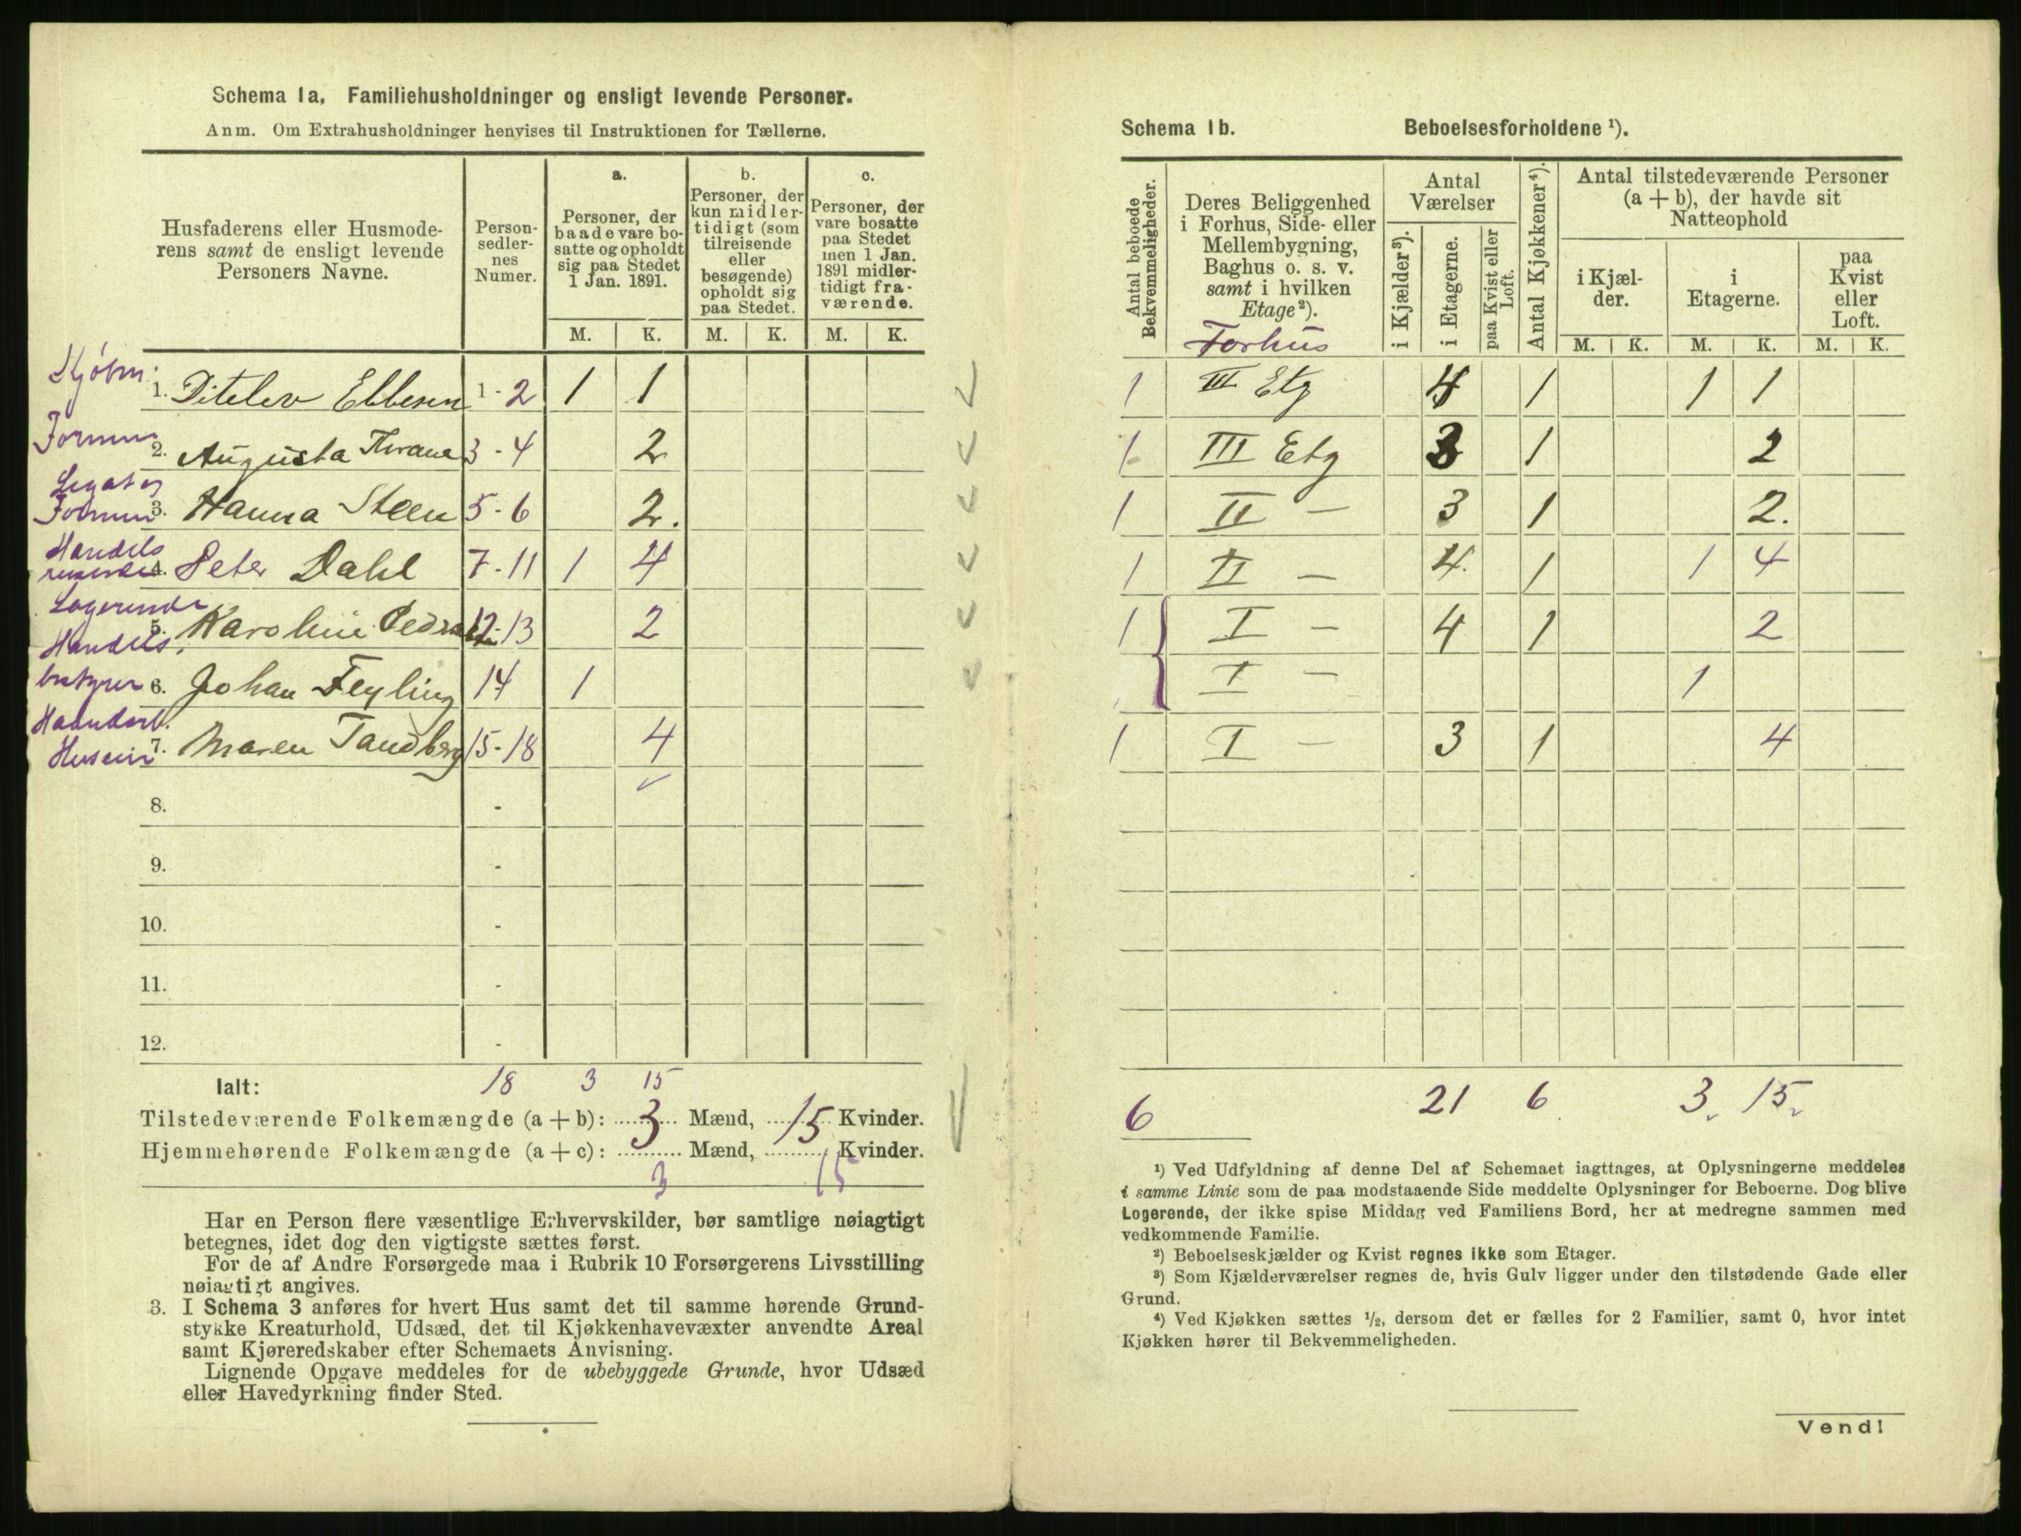 Schema 1a. Familiehusholdninger og ensligt levende Personer.
Anm. Om Extrahusholdninger henvises til Instruktionen for Tællerne.
Husfaderens eller Husmode-
rens samt de ensligt levende
Personers Navne.
Person-
sedler-
nes
Numer.
a.
Personer, der
baade vare bo-
satte og opholdt
sig paa Stedet
1 Jan. 1891.
b.
Personer, der
kun midler-
tidigt (som
tilreisende
eller
besøgende)
opholdt sig
paa Stedet.
c.
Personer, der
vare bosatte
paa Stedet
men 1 Jan.
1891 midler-
tidigt fra-
værende.
M. K. M. K. M. K.
Kjøbm.
1. Ditelev Ebbesen 1-2 1 1
Formue
2. Augusta Thrane 3-4 2
Legat og
Formue
3. Hanna Steen 5-6 2.
Handels
4. Peter Dahl 7-11 1 4
Logerende
5. Karoline 12-13 2
Handels.
bestyrer 6. Johan Feyling 14 1
Haandarb.
Huseier 7. Maren Tandberg 15-18 4
8. -
9. -
10. -
11. -
12. -
Ialt: 18 3 15
Tilstedeværende Folkemængde (a+b): 3 Mænd, 15 Kvinder.
Hjemmehørende Folkemængde (a+c): 3 Mænd, 15 Kvinder.
Har en Person flere væsentlige Erhvervskilder, bør samtlige nøiagtigt
betegnes, idet dog den vigtigste sættes først.
For de af Andre Forsørgede maa i Rubrik 10 Forsørgerens Livsstilling
nøiagtigt angives.
3. I Schema 3 anføres for hvert Hus samt det til samme hørende Grund-
stykke Kreaturhold, Udsæd, det til Kjøkkenhavevæxter anvendte Areal
samt Kjøreredskaber efter Schemaets Anvisning.
Lignende Opgave meddeles for de ubebyggede Grunde, hvor Udsæd
eller Havedyrkning finder Sted.
Schema 1b. Beboelsesforholdene ¹).
Antal beboede
Bekvemmeligheder.
Deres Beliggenhed
i Forhus, Side- eller
Mellembygning,
Baghus o. s. v.
samt i hvilken
Etage²).
Forhus
Antal
Værelser
i Kjælder³).
i Etagerne.
paa Kvist eller
Loft.
Antal Kjøkkener⁴).
Antal tilstedeværende Personer
(a + b), der havde sit
Natteophold
i Kjæl-
der.
i
Etagerne.
paa
Kvist
eller
Loft.
M. K. M. K. M. K.
1 III Etg 4 1 1 1
1 III Etg 3 1 2
1 II — 3 1 2.
1 II — 4. 1 1 4
1 I — 4 1 2
I — 1
1 I — 3 1 4
6 21 6 3 15
¹) Ved Udfyldning af denne Del af Schemaet iagttages, at Oplysningerne meddeles
i samme Linie som de paa modstaaende Side meddelte Oplysninger for Beboerne. Dog blive
Logerende, der ikke spise Middag ved Familiens Bord, her at medregne sammen med
vedkommende Familie.
²) Beboelseskjælder og Kvist regnes ikke som Etager.
³) Som Kjælderværelser regnes de, hvis Gulv ligger under den tilstødende Gade eller
Grund.
⁴) Ved Kjøkken sættes ½, dersom det er fælles for 2 Familier, samt 0, hvor intet
Kjøkken hører til Bekvemmeligheden.
Vend!